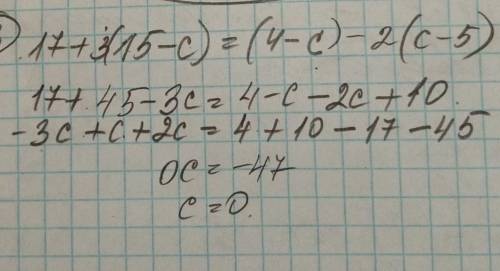 17+3(15-c)=(4-c)-2(c-5)
17+45-3c=4-c-2c+10
-3c+c+2c=4+10-17-45
0c=-47
c=0.